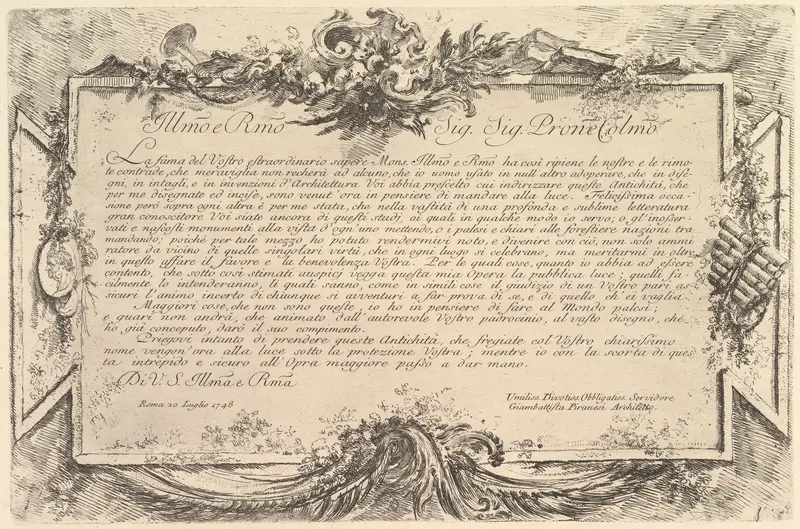 Illmo e Rmo Sig. Sig. Pron̄e Colmo
La fama del Vostro estraordinario sapere Mons. Illmo e Rmo ha così ripiene le nostre e le rimo-
te contrade, che meraviglia non recherà ad alcuno, che io uomo usato in null'altro adoperare, che in dise-
gni, in intagli, e in invenzioni d'Architettura Voi abbia prescelto cui indirizzare queste Antichità, che
per me disegnate ed incise, sono venut'ora in pensiere di mandare alla luce. Felicissima occa-
sione però sopra ogni altra è per me stata, che nella vastità d'una profonda e sublime letteratura
gran conoscitore Voi siate ancora di questi studj, ai quali in qualche modo io servo; o gl'inosser-
vati e nascosti monumenti alla vista d'ogn'uno mettendo, o i palesi e chiari alle forestiere nazioni tra-
mandando; poichè per tale mezzo ho potuto rendermivi noto, e divenire con ciò, non solo ammi-
ratore da vicino di quelle singolari virtù, che in ogni luogo si celebrano, ma meritarmi in oltre
in questo affare il favore e la benevolenza Vostra. Per la qual cose, quanto io abbia ad essere
contento, che sotto così stimati auspicj vegga questa mia Opera la pubblica luce; quelli fa-
cilmente lo intenderanno, li quali sanno, come in simili cose il giudizio di un Vostro pari as-
sicuri l'animo incerto di chiunque si avventuri a far prova di se, e di quello ch'ei vaglia.
Maggiori cose, che non sono queste, io ho in pensiere di fare al Mondo palesi;
e guari non andrà, che animato dall'autorevole Vostro padrocinio, al vasto disegno, che
ho già conceputo, darò il suo compimento.
Priegovi intanto di prendere queste Antichità, che fregiate col Vostro chiarissimo
nome vengon'ora alla luce sotto la protezione Vostra; mentre io con la scorta di ques-
ta intrepido e sicuro all'Opra maggiore passo a dar mano.
Di V. S. Illma e Rma
Roma 20 Luglio 1748
Umiliss. Divotiss. Obbligatiss. Servidore
Giambattista Piranesi Architetto.